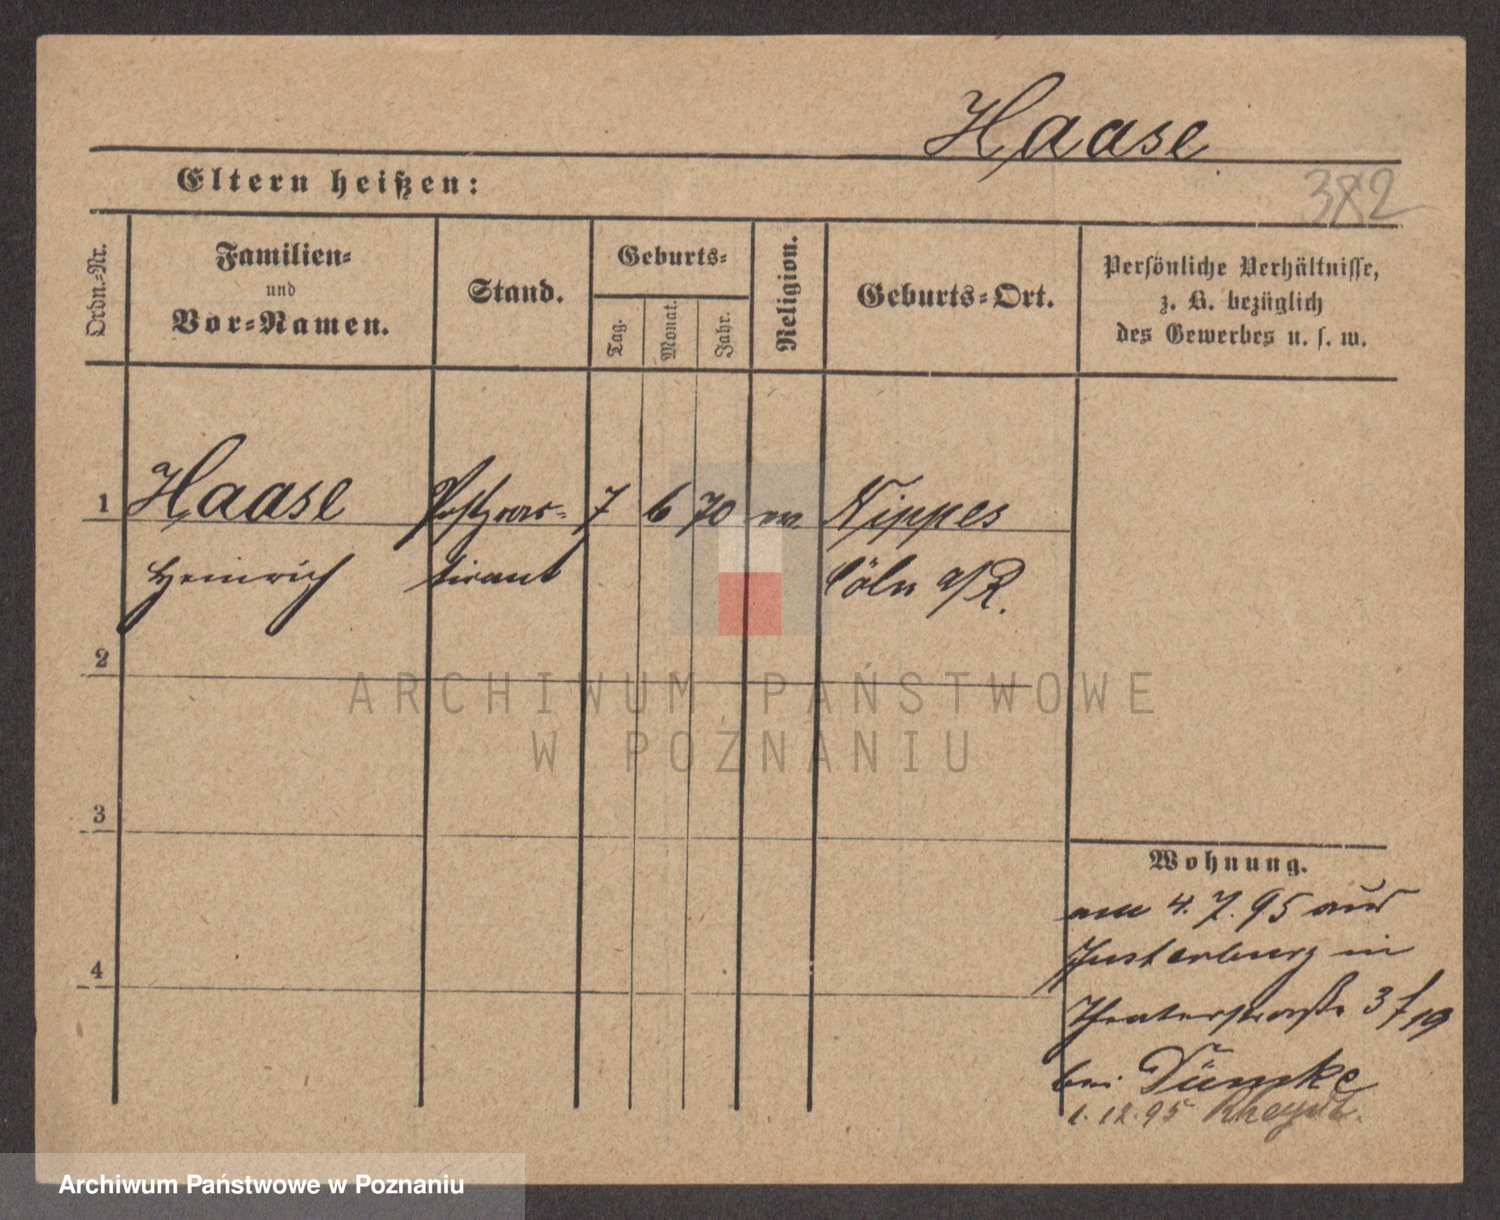 Haase
Eltern heißen:
382
Ordn.=Nr.
Familien=
und
Vor=Namen.
Stand.
Geburts=
Tag.
Monat.
Jahr.
Religion.
Geburts=Ort.
Persönliche Verhältnisse,
z. B. bezüglich
des Gewerbes u. s. w.
1 Haase 7 6 70 Nippes
Heinrich Cöln a/R.
2
ARCHIWUM PAŃSTWOWE
W POZNANIU
3
4
Wohnung.
am 4.7.95 aus
Insterburg in
Theaterstraße 3
bei Dümke
1.12.95 Rheydt.
Archiwum Państwowe w Poznaniu